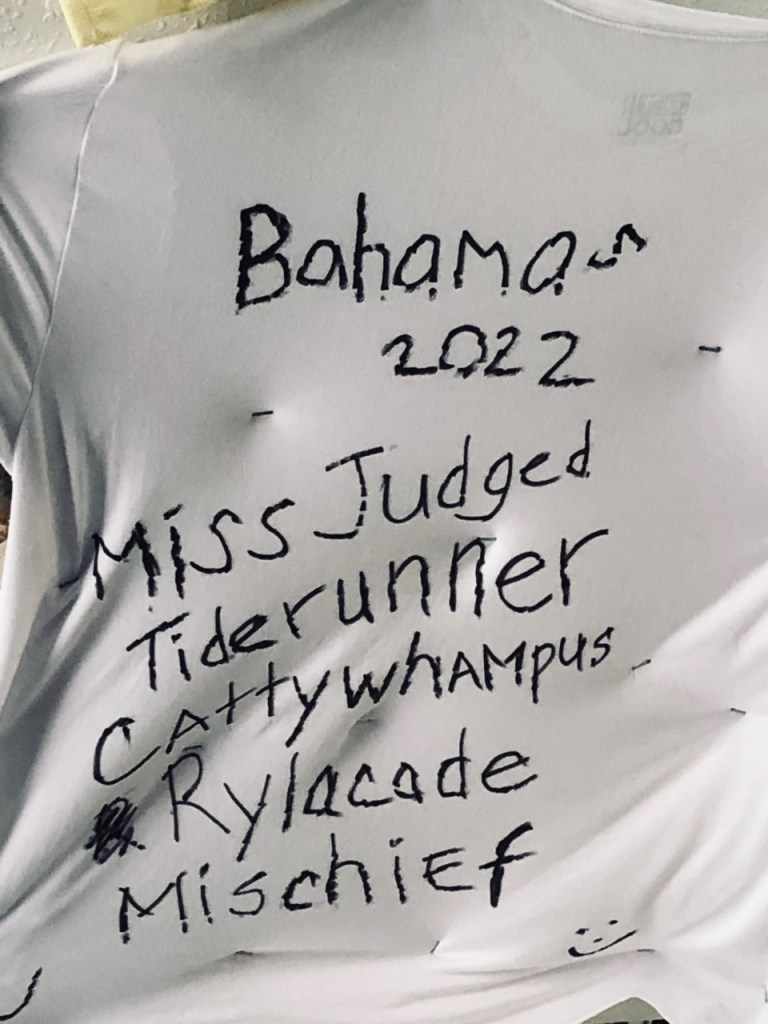 Bahamas
2022
Miss Judged
Tiderunner
CAttywhAMpus
Rylacade
MischiEf